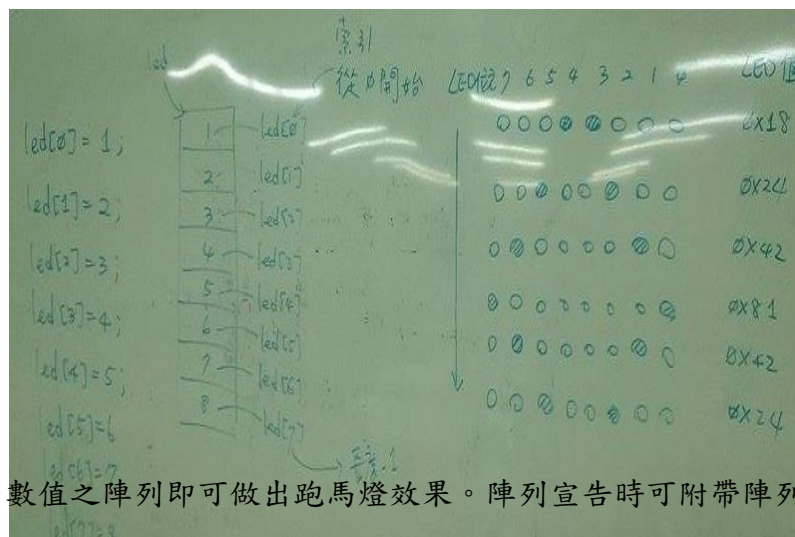 led
索引
從0開始
led[0] = 1;
led[1] = 2;
led[2] = 3;
led[3] = 4;
led[4] = 5;
led[5] = 6
led[6] = 7
led[7] = 8
1 led[0]
2 led[1]
3 led[2]
4 led[3]
5 led[4]
6 led[5]
7 led[6]
8 led[7]
7 6 5 4 3 2 1 0
LED值
0x18
0x24
0x42
0x81
0x42
0x24
數值之陣列即可做出跑馬燈效果。陣列宣告時可附帶陣列